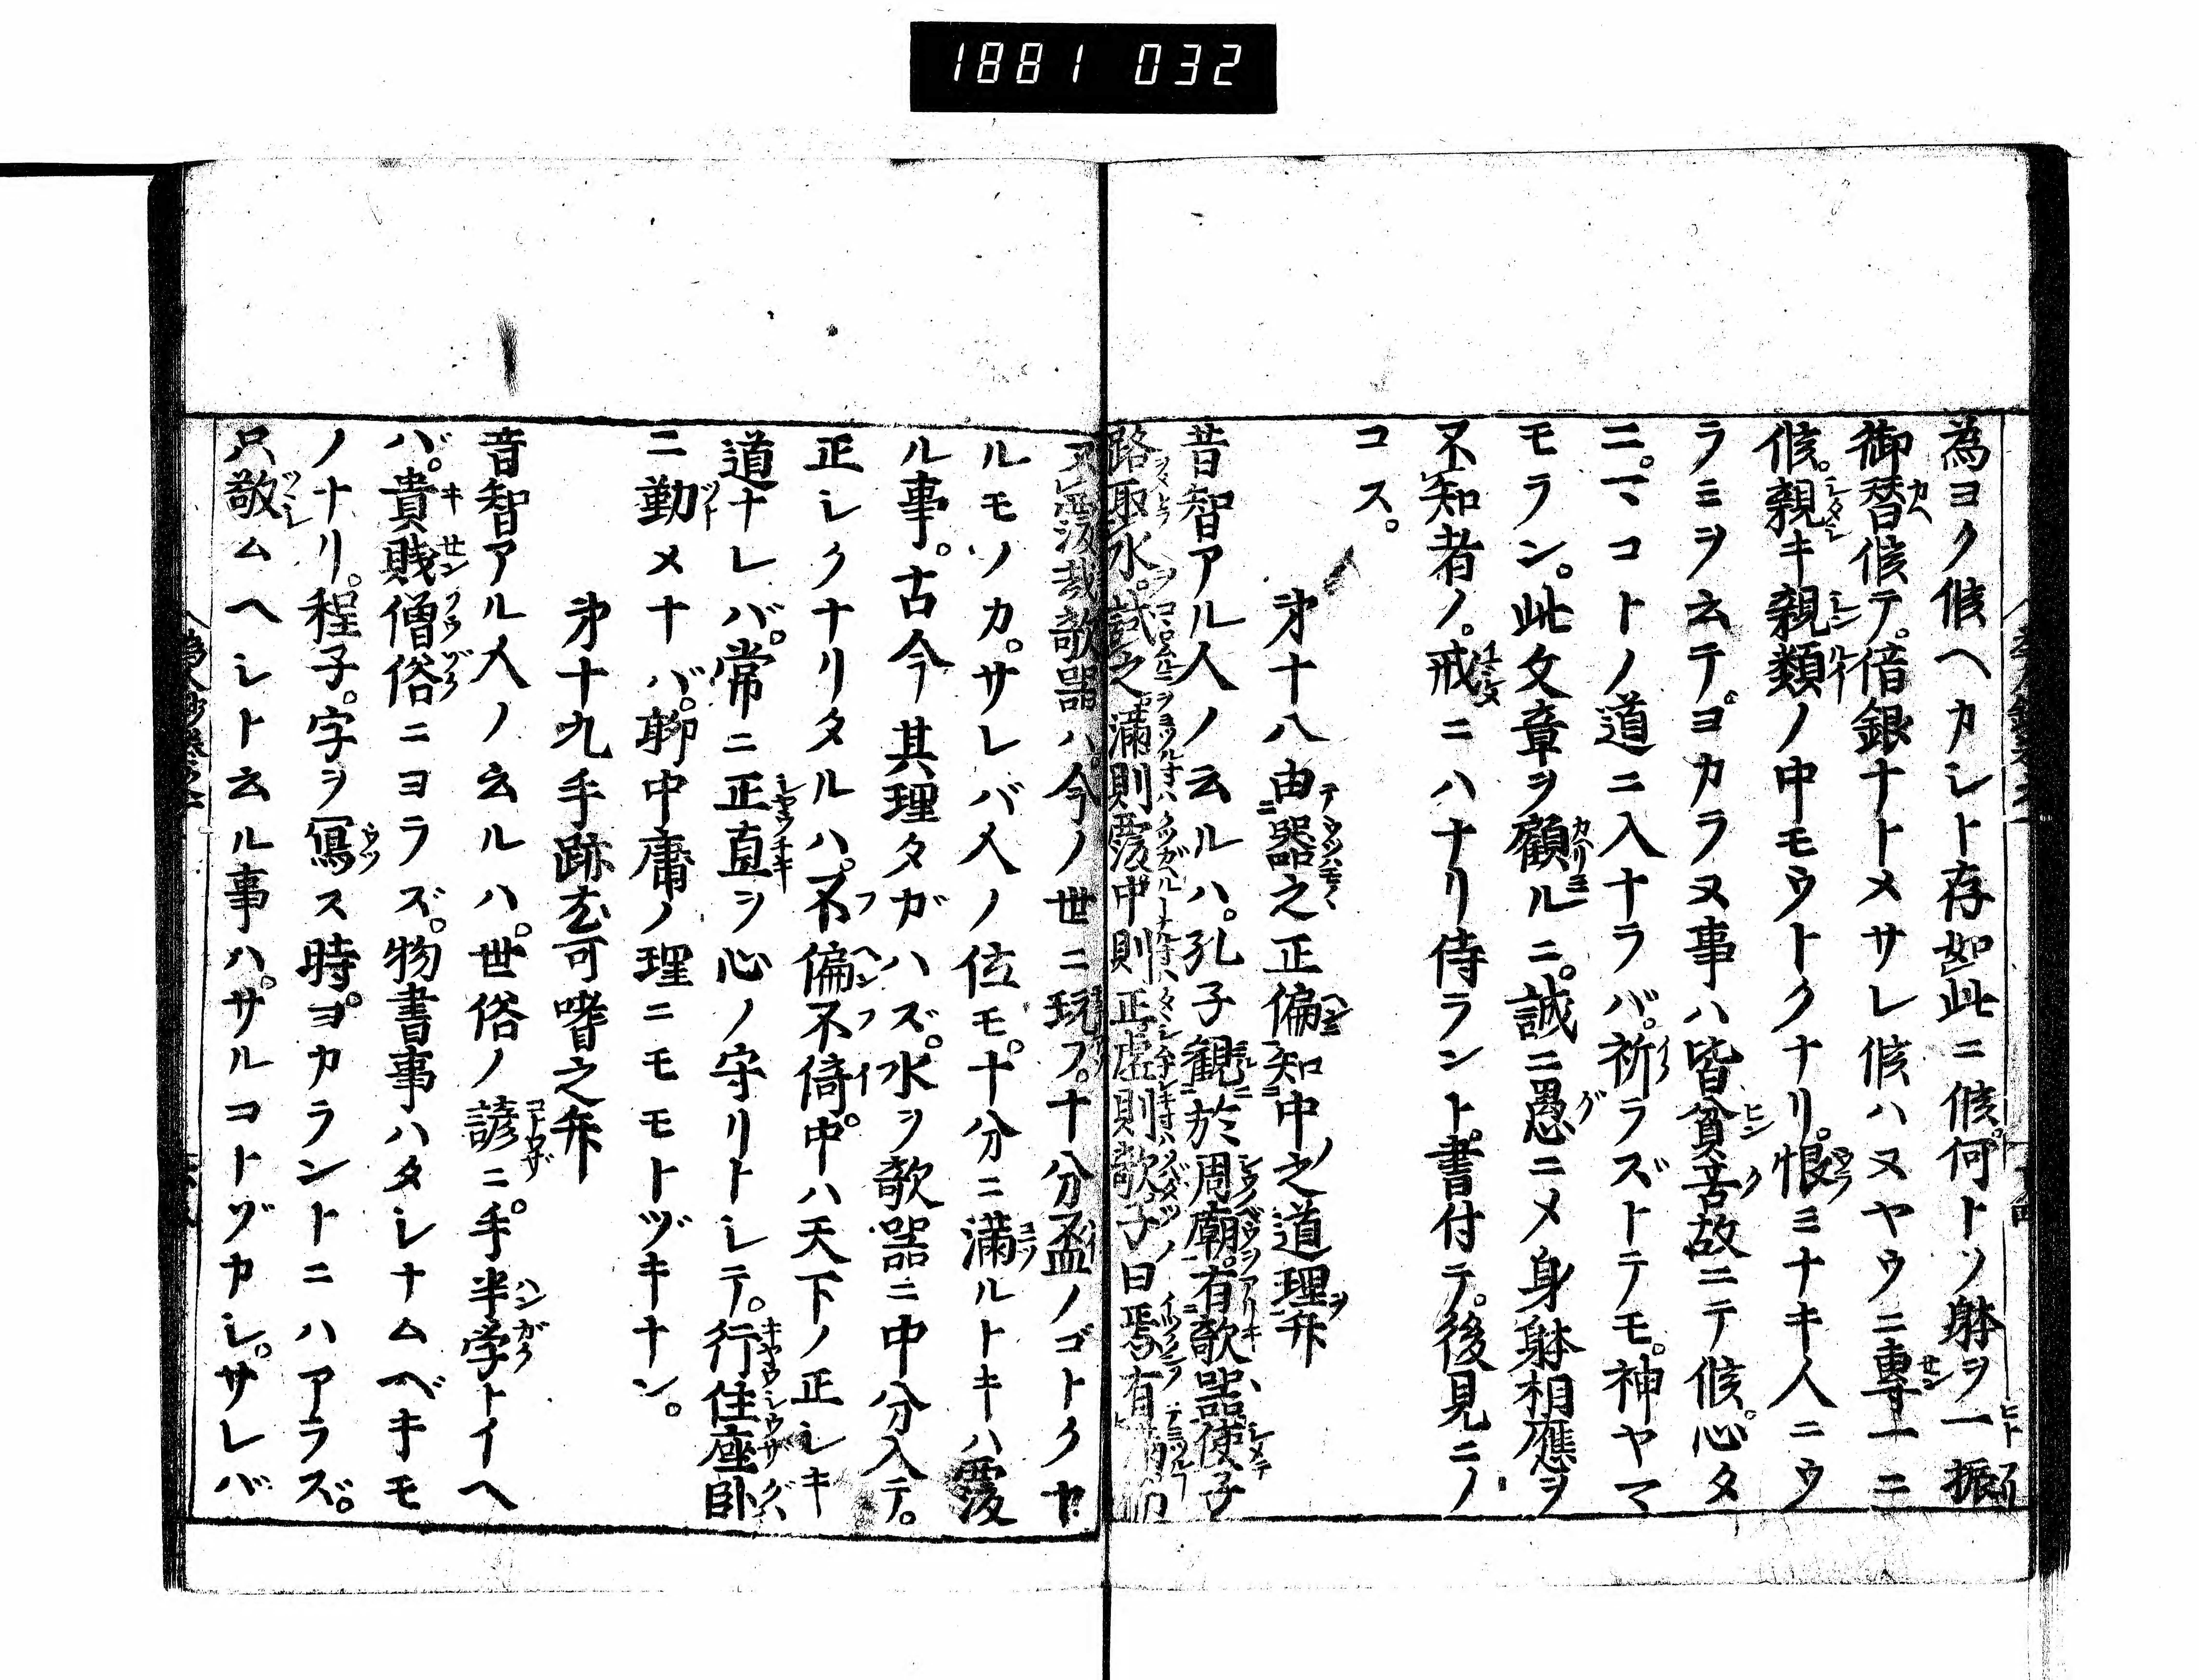 1881 032
為ヨク候ヘカシト存如此ニ候。何トソ躰ヲ一振
御替候テ。借銀ナトメサレ候ハヌヤウニ専一ニ
候。親キ親類ノ中モウトクナリ。恨ミナキ人ニウ
ラミヲ云テ。ヨカラヌ事ハ皆貧苦故ニテ候。心タ
ニ。マコトノ道ニ入ナラバ。祈ラズトテモ。神ヤマ
モラン。此文章ヲ顧ルニ。誠ニ愚ニメ身躰相應ヲ
不知者ノ。戒ニハナリ侍ラント。書付テ。後見ニノ
コス。
㐧十八由器之正偏知中之道理弁
昔智アル人ノ云ルハ。孔子観於周廟。有欹器。使子
路取水。試之。満則覆中則正虚則欹子曰焉有
覆哉欹器ハ。今ノ世ニ玩フ。十分盃ノゴトクヤ
ルモノカ。サレバ人ノ位モ。十分ニ満ルトキハ覆
ル事。古今其理タガハズ。水ヲ欹器ニ中分入テ。
正レクナリタルハ。不偏不倚中。中ハ天下ノ正レキ
道ナレバ。常ニ正直ヲ心ノ守リトレテ。行住座臥
ニ勤メナバ。聊中庸ノ理ニモモトヅキナン。
㐧十九手跡玄可嗜之弁
昔智アル人ノ云ルハ。世俗ノ諺ニ。手半学トイヘ
バ。貴賎僧俗ニヨラズ。物書事ハタレナムベキモ
ノナリ。程子。字ヲ寫ス時。ヨカラントニハアラズ。
只敬ムヘシト云ル事ハ。サルコトゾカシ。サレバ